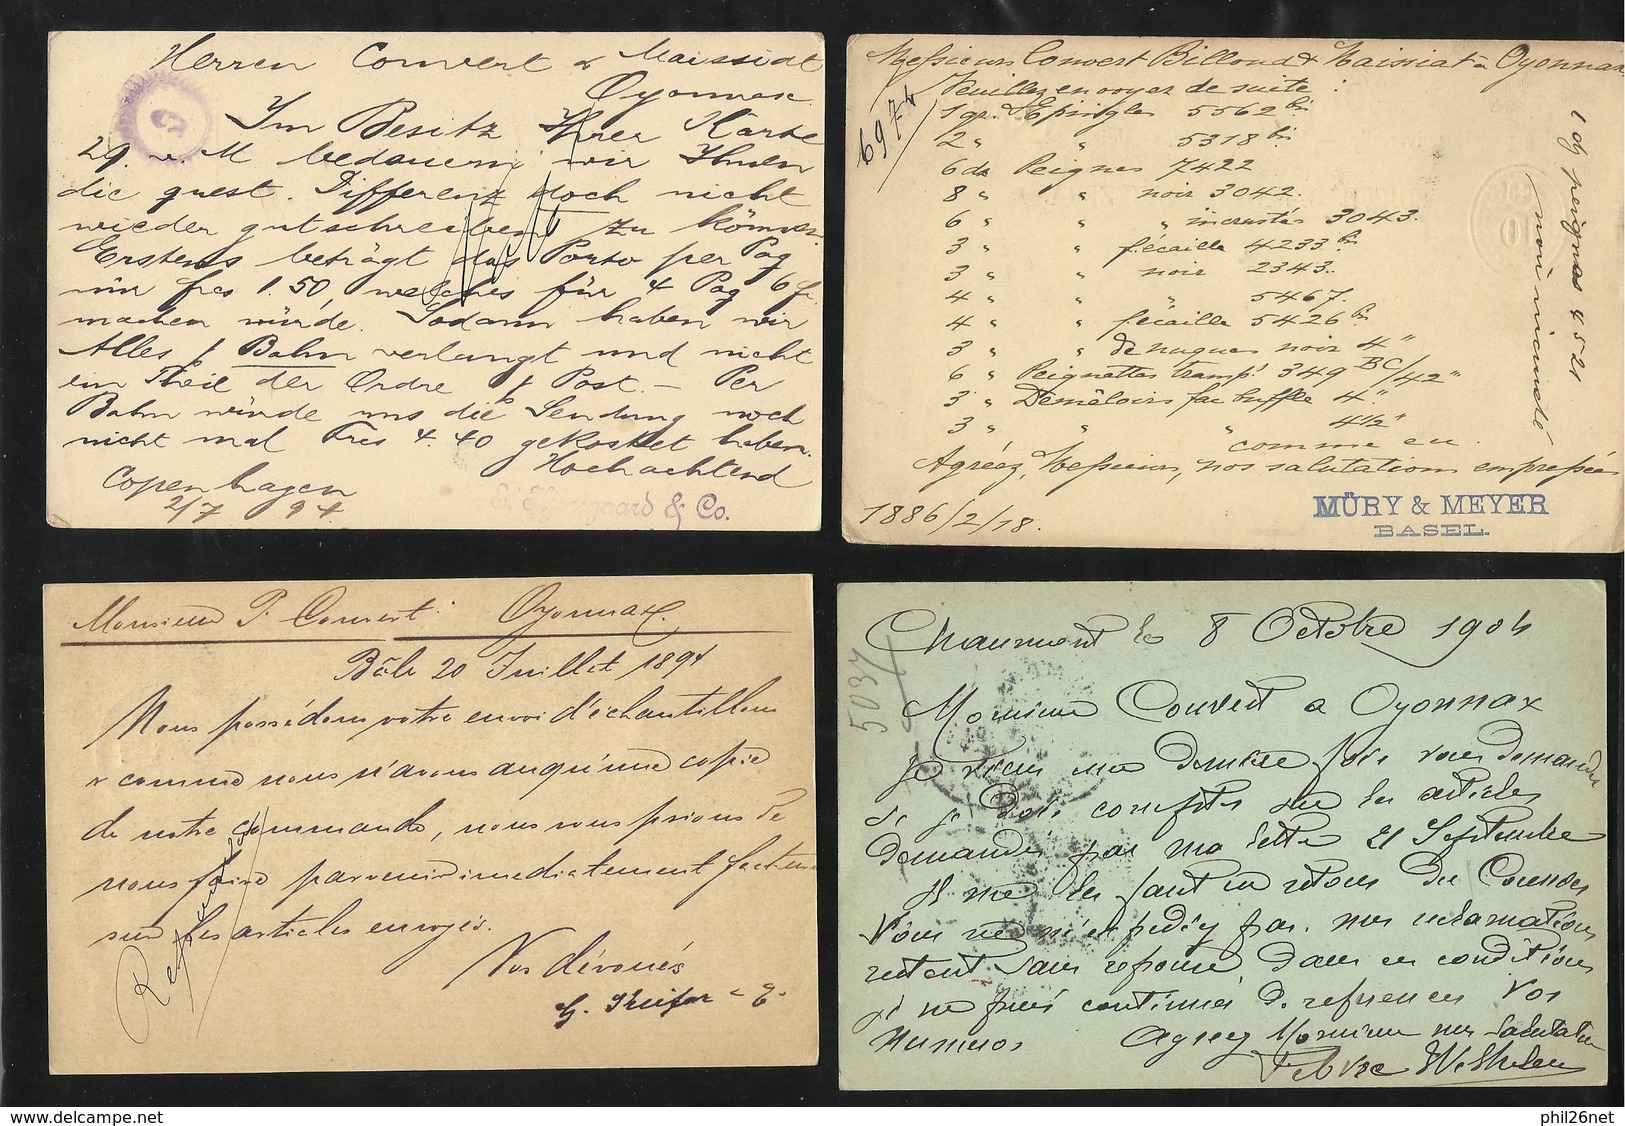 Herren Convert & Maissiat
Oyonnax
Im Besitz Ihrer Karte
29. v. M bedauern wir Ihnen
die quest. Differenz doch nicht
wieder gutschreiben zu können.
Erstens beträgt das Porto per Paq
nur frcs 1.50, welches für 4 Paq 6 f
machen würde. Sodann haben wir
Alles p Bahn verlangt und nicht
ein Theil der Ordre p Post. – Per
Bahn würde uns die Sendung noch
nicht mal Frcs 4.40 gekostet haben.
Hochachtend
Copenhagen
2/7 94.
& Co.
Messieurs Convert Billond & Maissiat à Oyonnax
Veuillez envoyer de suite :
1 gr. d'Epingles 5562 bis
2 " " 5318 bis
6 dz Peignes 7422
8 " " noir 3042.
6 " " " incrustés 3043.
3 " " f. écaille 4233 bis
3 " " noir 2343.
4 " " " 5467.
4 " " f. écaille 5426 bis
3 " " de nuques noir 4"
6 " Peignettes tramp. 349 BC/42"
3 " Démêloirs fac buffle 4"
3 " " " 4½"
comme eu.
Agréez, Messieurs, nos salutations empressées
1886/2/18.
MÜRY & MEYER
BASEL.
6974
peignes 4521
noir
Monsieur P. Convert Oyonnax.
Bâle 20 Juillet 1894
Nous possédons votre envoi d'échantillons
& comme nous n'avons auqu'une copie
de notre commande, nous vous prions de
nous faire parvenir immediatement facture
sur les articles envoyés.
Vos dévoués
Chaumont le 8 Octobre 1904
5037
Monsieur Convert a Oyonnax
Je viens une dernière fois vous demander
si je dois compter sur les articles
demandés par ma lettre 21 Septembre
il me les faut en retour du Courrier
Vous ne m'expédiez pas. mes réclamations
restent sans réponse dans ces conditions
je ne puis continuer de references Vos
numeros Agreez Monsieur mes salutations
Febvre
phil26net